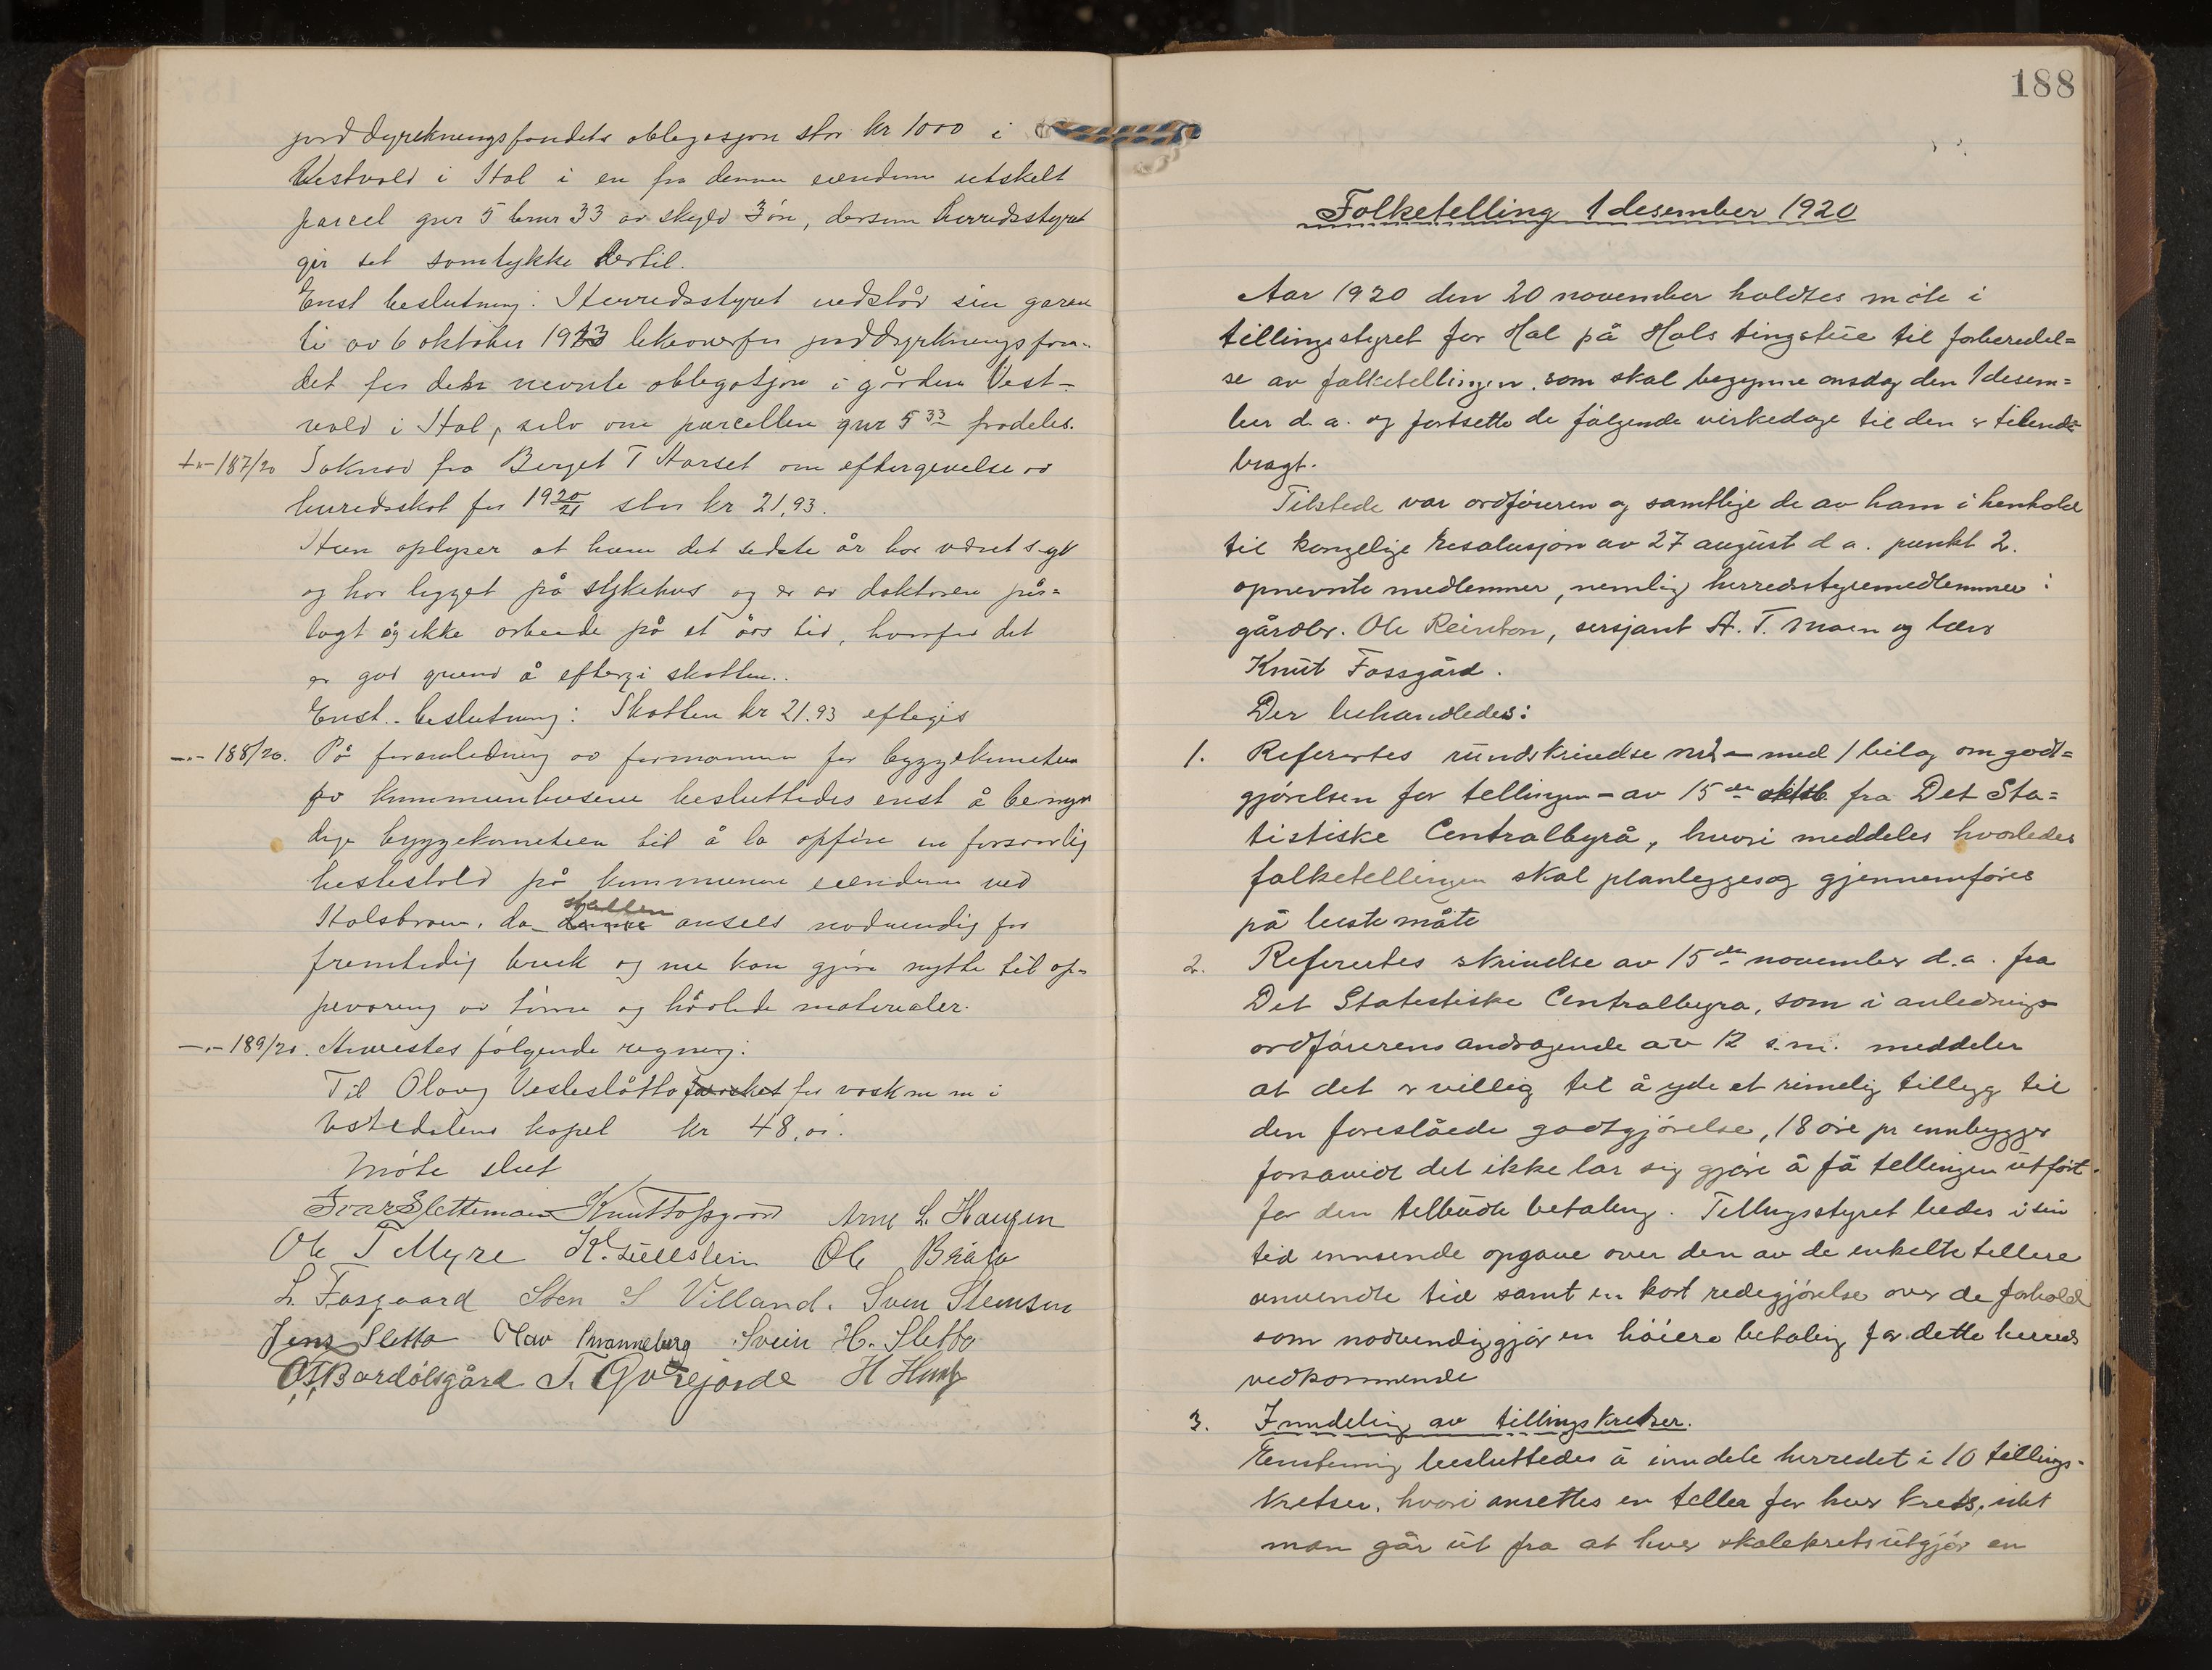 jorddyrkningsfondets obligasjon stor kr 1000 i
Vestvold i Hol i en fra denne eiendom utskelt
parcel gnr 5 bnr 33 av skyld 3 öre, dersom herredsstyret
gir set samtykke hertil.
Enst beslutning: Herredsstyret vedstår sin garan
ti av 6 oktober 1913 likeoverfor jorddyrkningsfon-
det for den nevnte obligasjon i gården Vest-
vold i Hol, selv om parcellen gnr 5 33 fradeles.
-"- 187/20 Söknad fra Berget T Harset om eftergivelse av
herredsskat for 1920/21 stor kr 21,93.
Hun oplyser at hun det sidste år har været syk
og har ligget på sykehus og er av doktoren på-
lagt og ikke arbeide på et års tid, hvorfor det
er god grund å eftergi skatten.
Enst. beslutning: Skatten kr 21.93 eftergis
-"- 188/20. På foranledning av formannen for byggekomiteen
for kommunehusene besluttedes enst å bemyn
dige byggekomiteen til å la opföre en forsvarlig
hestestald på kommunens eiendom ved
Holsbroen, da denne stallen ansees nödvendig for
fremtidig bruk og nu kan gjöre nytte til op-
pevaring av timmer og hövlede materialer.
-"- 189/20. Anvistes fölgende regning:
Til Olaug Vesleslåtto for vask m m i
Ustedalens kapel kr 48,00.
Möte slut
Ivar Slettemoen Knut Fossgård Arne L. Haugen
Ole T Myre K. Lillestein Ole Bråta
L. Fosgaard Sten S Villand. Sven Stensen
Jens Sletto Olav Svanneberg Svein H. Sletto
O.T. Bardölsgård T. Gurejorde H Hunf
188
Folketelling 1 desember 1920
Aar 1920 den 20 november holdtes möte i
tellingsstyret for Hol på Hols tingstue til forberedel=
se av folketellingen, som skal begynne onsdag den 1 desem=
ber d.a. og fortsette de fölgende virkedage til den er tilende-
bragt.
Tilstede var ordföreren og samtlige de av ham i henhold
til kongelige resolusjon av 27 august d a. punkt 2.
opnevnte medlemmer, nemlig herredsstyremedlemmer:
gårdbr. Ole Reinton, sersjant A. T. Moen og lærer
Knut Fossgård.
Der behandledes:
1. Refertes rundskrivelse nr 2 - med 1 bilag om godt=
gjörelsen for tellingen - av 15de oktob. fra Det Sta=
tistiske Centralbyrå, hvori meddeles hvorledes
folketellingen skal planlegges og gjennemföres
på beste måte
2. Refertes skrivelse av 15de november d.a. fra
Det Statestiske Centralbyra, som i anlednings
ordförerens andragende av 12 s.m. meddeler
at det er villig til å yde et rimelig tillegg til
den foreslåede godtgjörelse, 18 öre pr innbygger
forsavidt det ikke lar sig gjöre å få tellingen utfört
for den tilbudte betaling. Tellingsstyret bedes i sin
tid innsende opgave over den av de enkelte tellere
anvendte tid samt en kort redegjörelse over de forhold
som nödvendiggjör en höiere betaling for dette herreds
vedkommende
3. Inndeling av tellingskretser.
Enstemig besluttedes å inndele herredet i 10 tellings-
kretser, hvori ansettes en teller for hver krets, idet
man går ut fra at hver skolekrets utgjör en